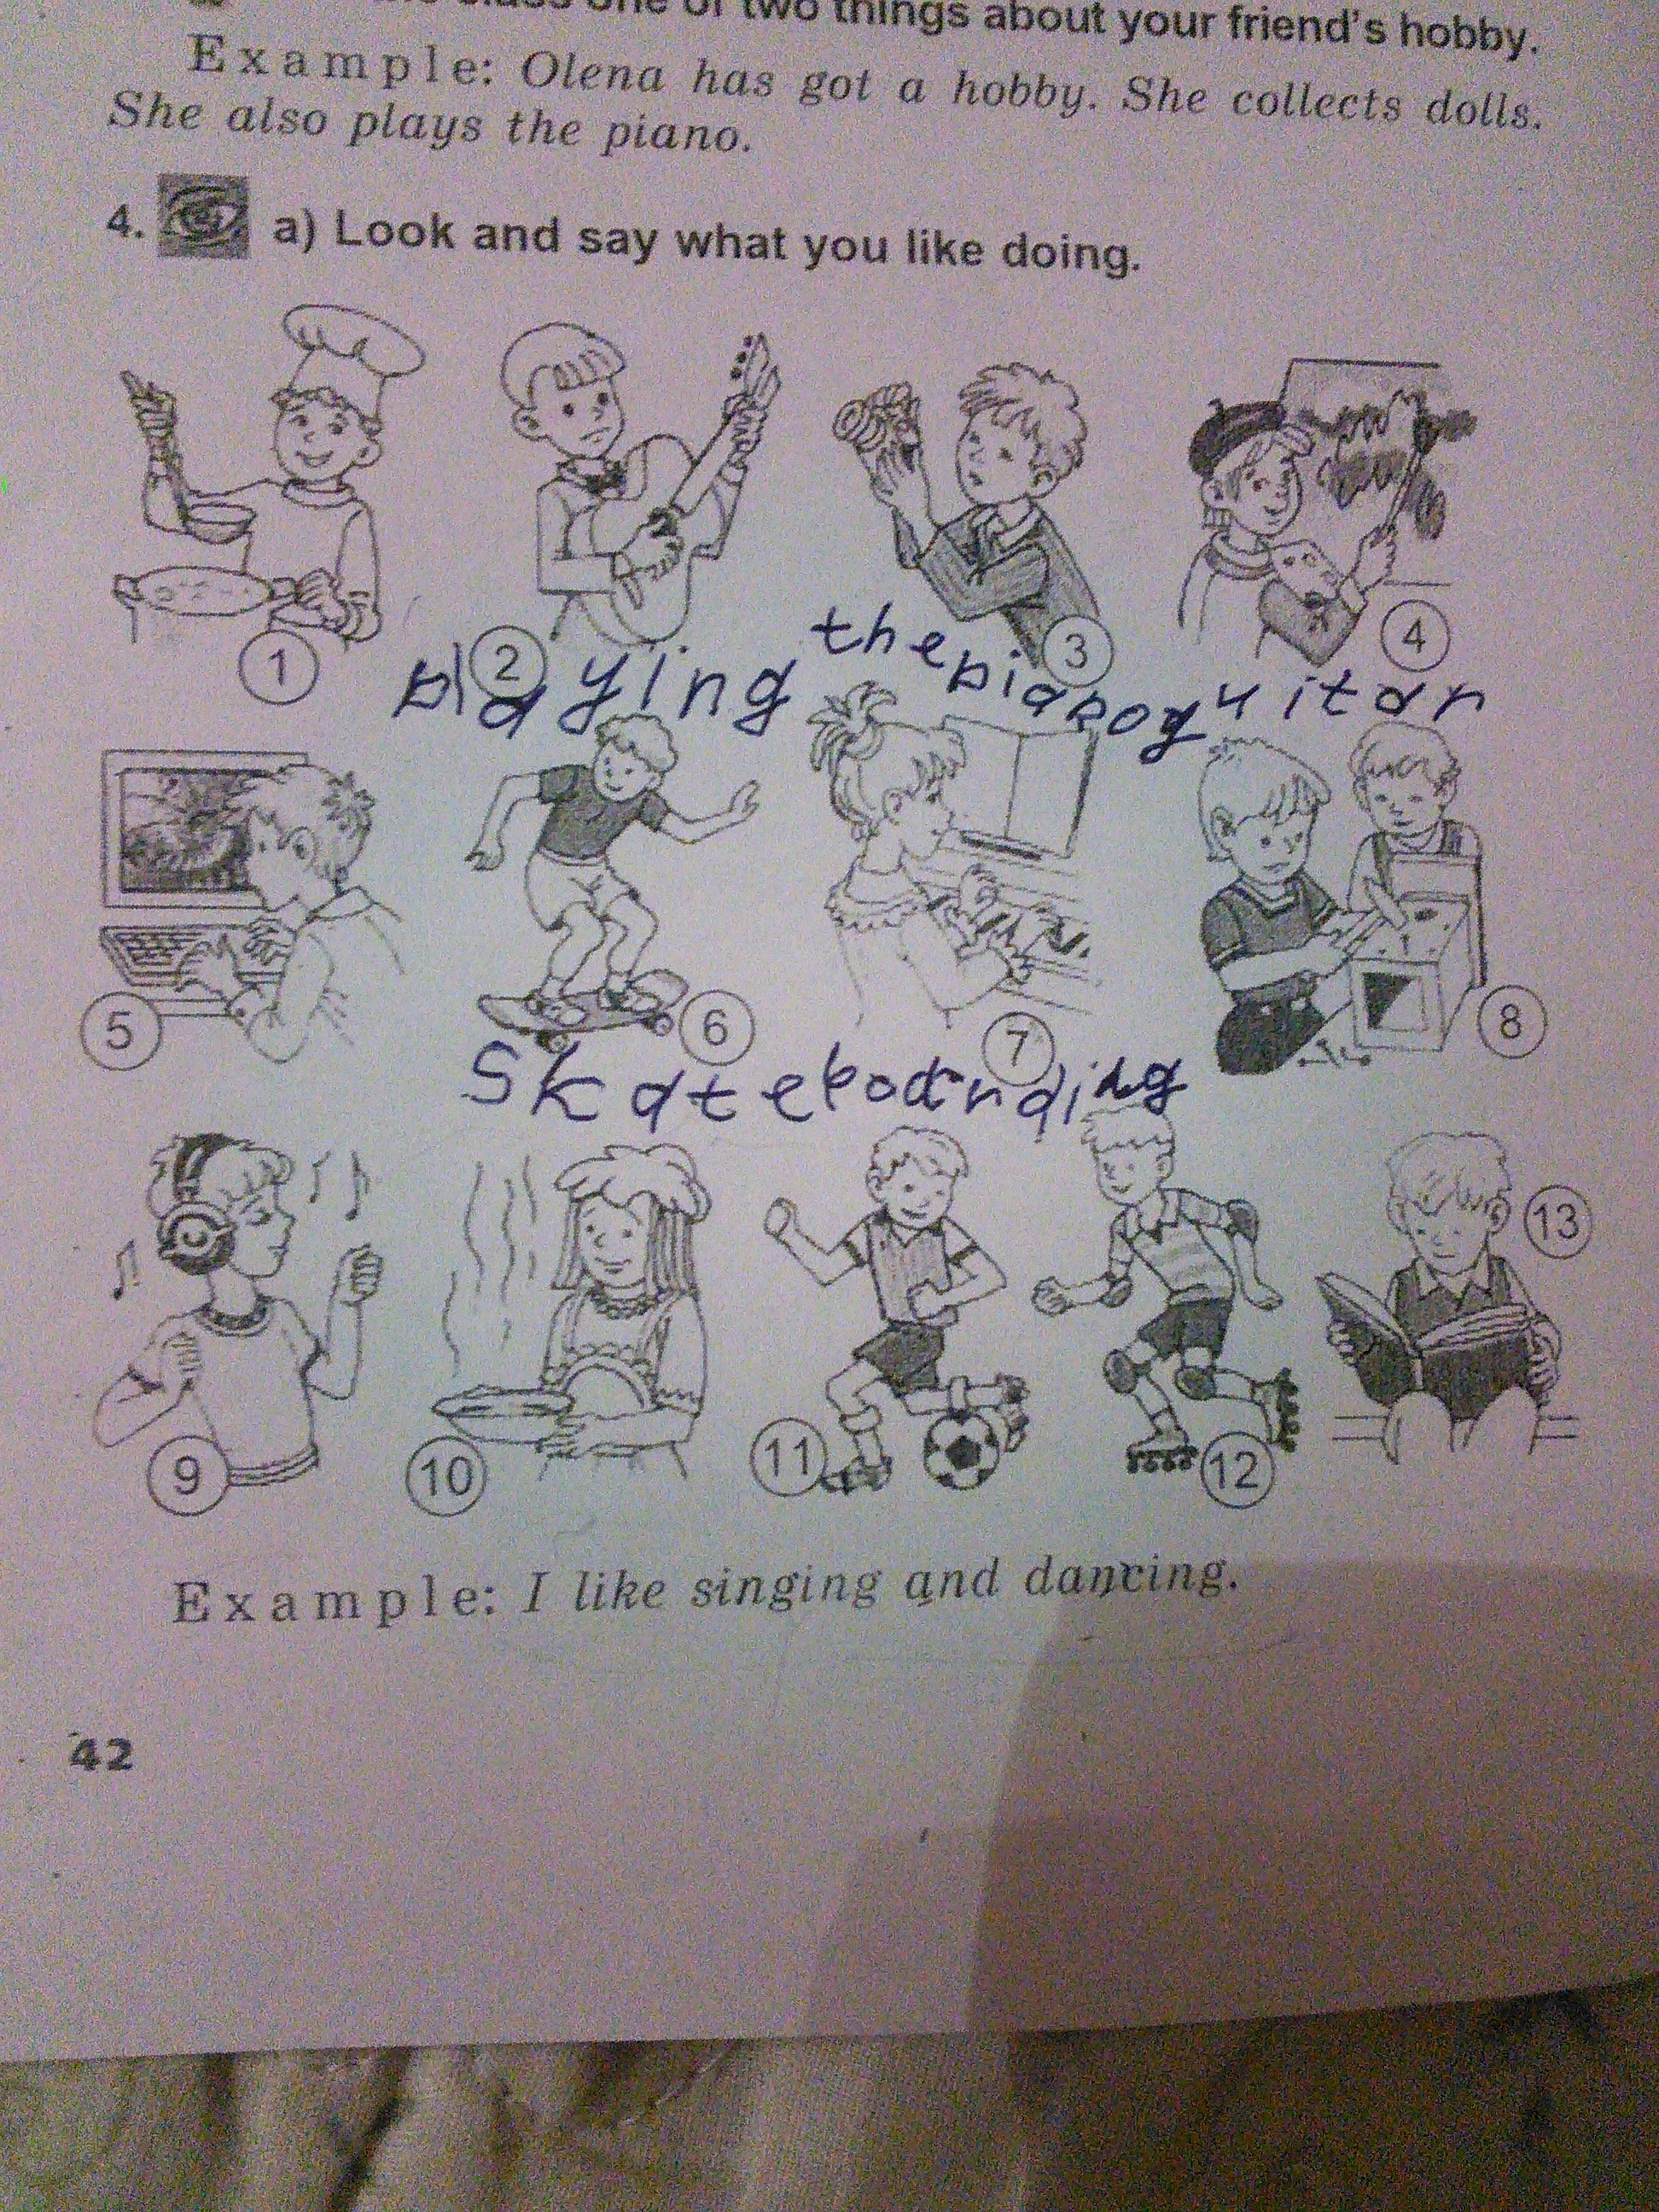 class one or two things about your friend's hobby.
Example: Olena has got a hobby. She collects dolls.
She also plays the piano.
4. a) Look and say what you like doing.
1 2 3 4
playing the piano guitar
5 6 7 8
Skateboarding
9 10 11 12 13
Example: I like singing and dancing.
42